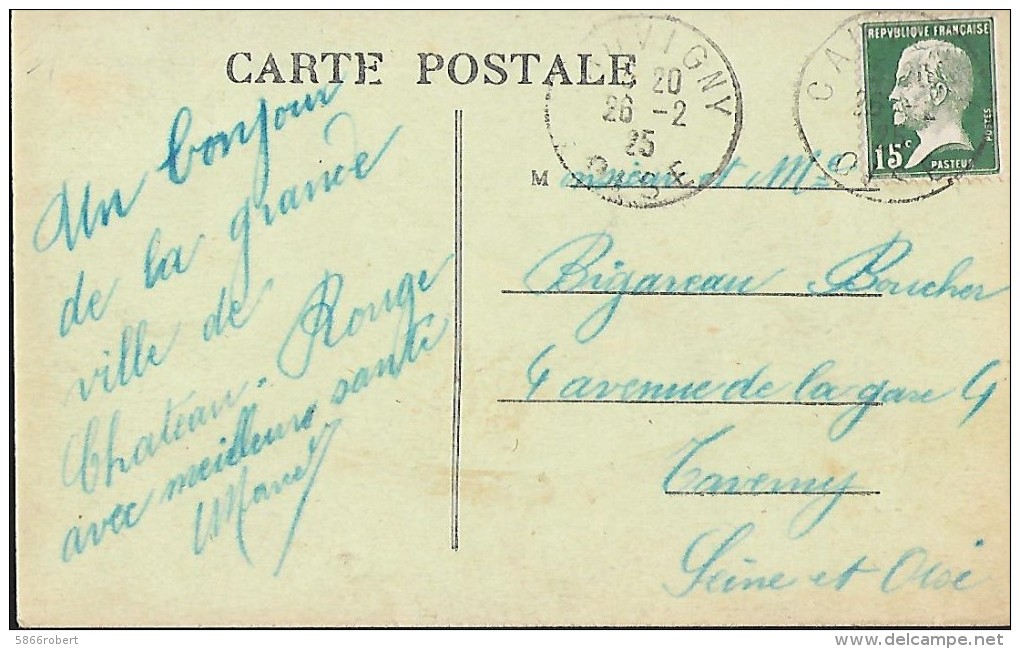 CARTE POSTALE
Un bonjour
de la grande
ville de
Chateau-Rouge
avec meilleure santé
Marcel
CAUVIGNY
20
26 - 2
25
OISE
REPUBLIQUE FRANÇAISE
15c
POSTES
PASTEUR
Monsieur et Mme
Bigareau Boucher
4 avenue de la gare 4
Taverny
Seine et Oise
5866robert
www.delcampe.net